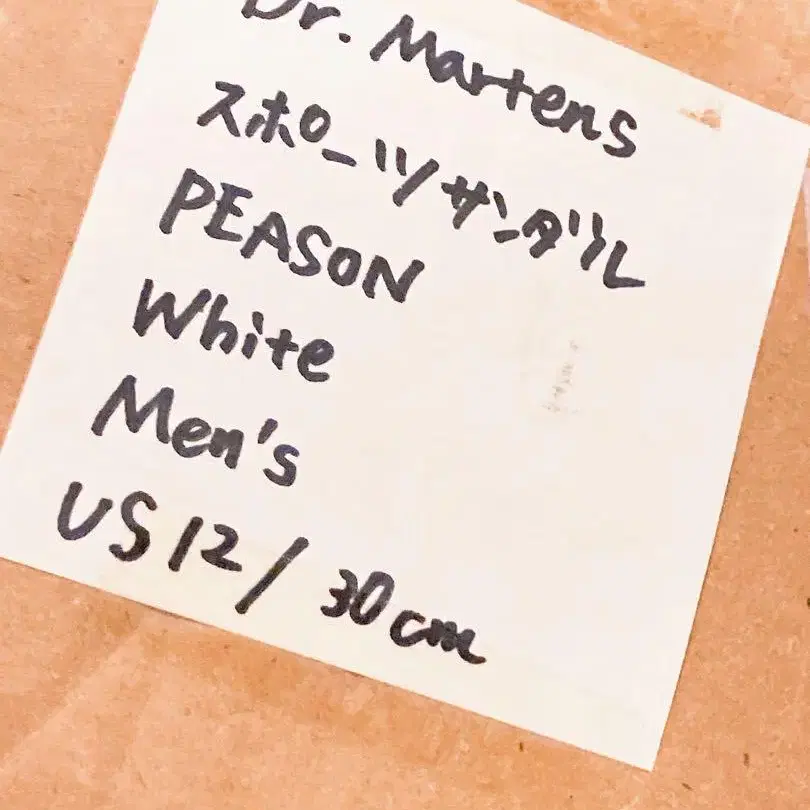 Dr. Martens
スポーツサンダル
PEASON
White
Men's
US 12 / 30cm